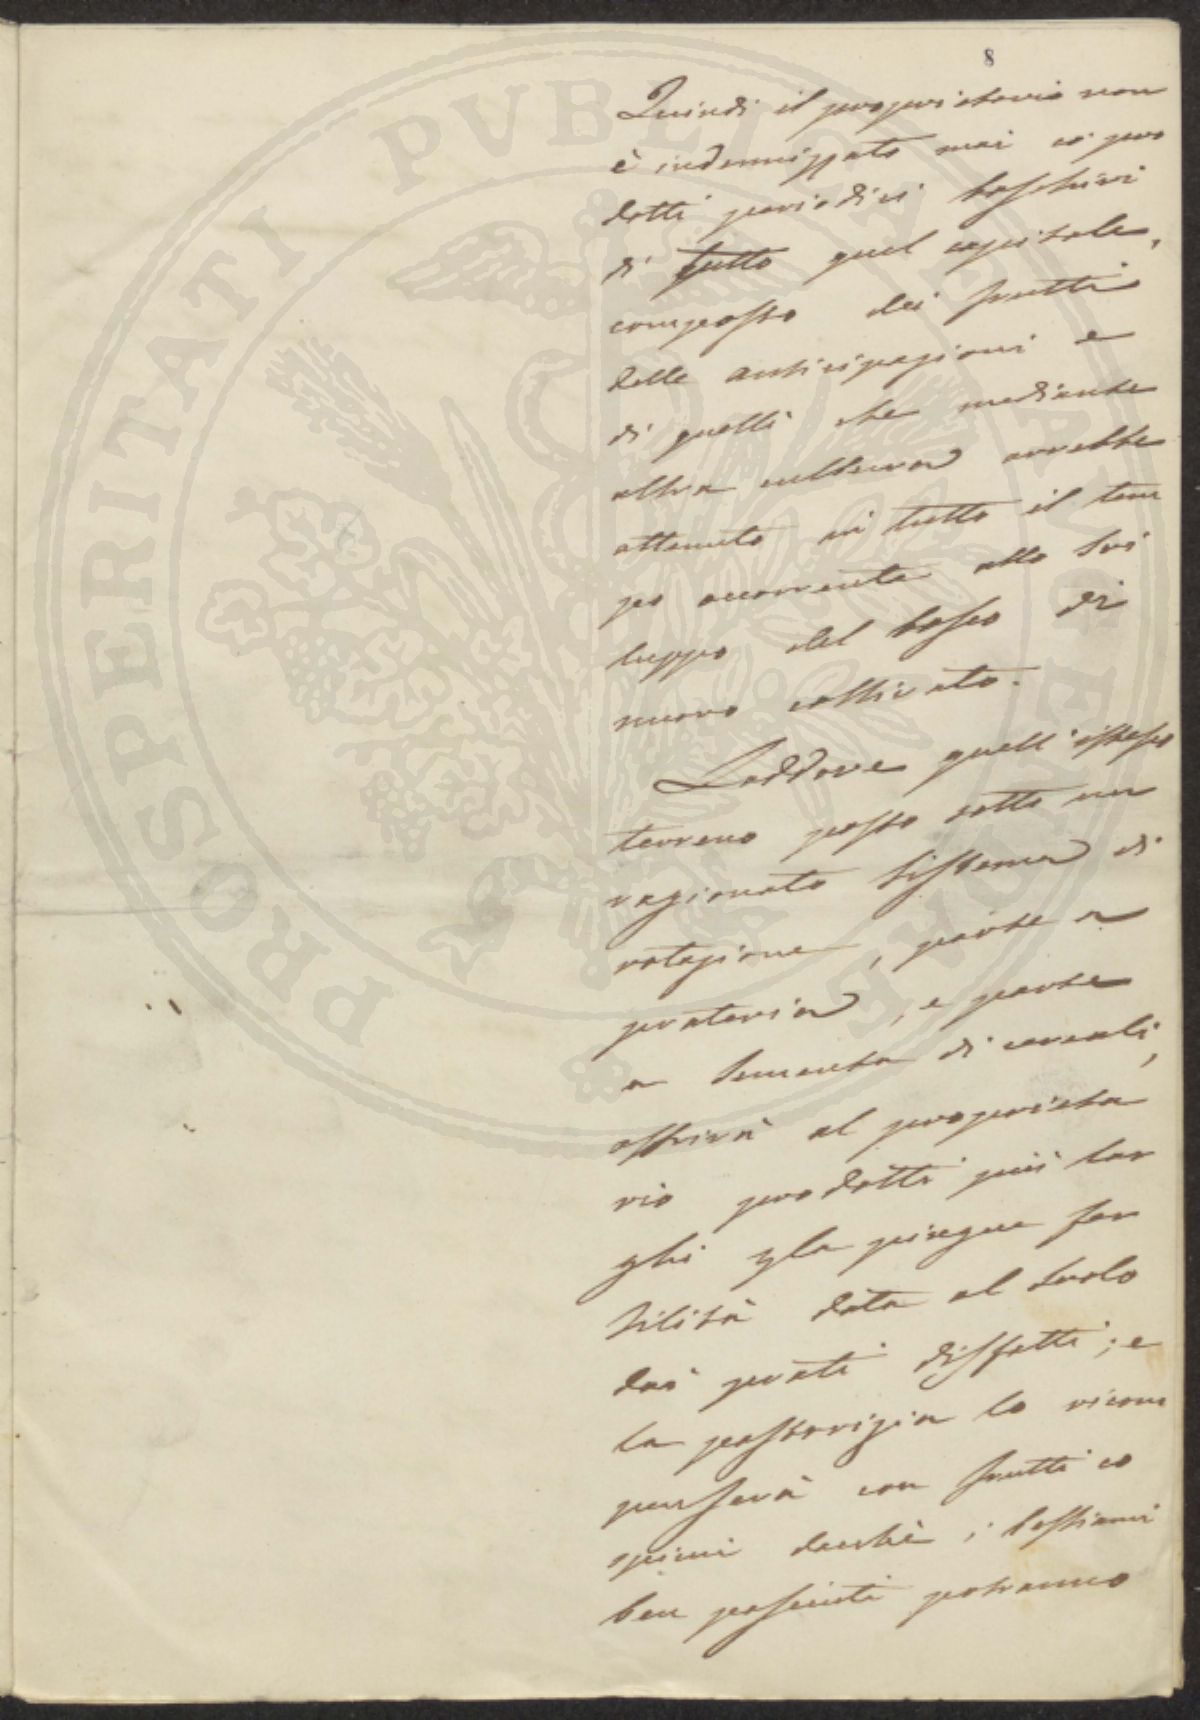 8
Quindi il proprietario non
è indennizzato mai co' pro
dotti periodici boschivi
di tutto quel capitale,
composto dei frutti
delle anticipazioni e
di quelli che mediante
altra cultura avrebbe
ottenuto in tutto il tem
po occorrente allo svi
luppo del bosco di
nuovo coltivato.
Laddove quell'istesso
terreno posto sotto un
ragionato sistema di
rotazione, parte a
prateria, e parte
a sementa di cereali,
offrirà al proprieta
rio prodotti più lar
ghi p la pingue fer
tilità data al suolo
dai prati disfatti; e
la pastorizia lo ricom
penserà con frutti co
spicui dacchè i bestiami
ben pasciuti potranno
PROSPERITATI PVBLICAE AVGENDAE